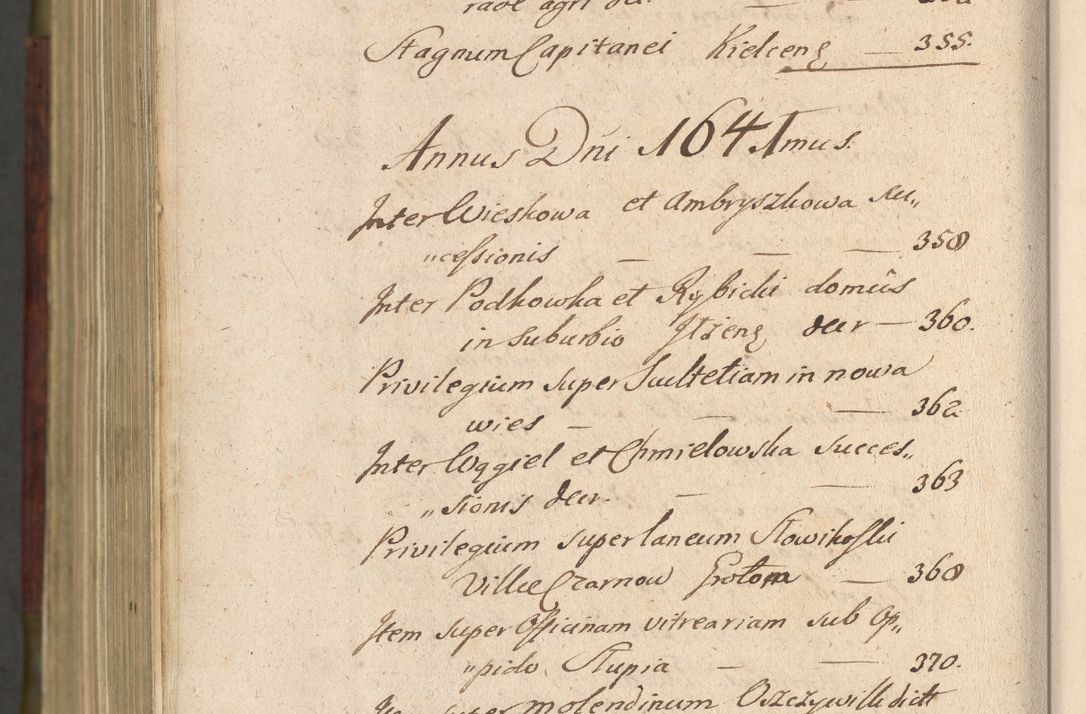 Stagnum Capitanei Kielcens — 355.
Annus Dñi 1641mus.
Inter Wieskowa et Ambryszkowa Suc„
„cessionis — — — 358
Inter Podkowka et Rybicki domûs
in suburbio Ilżens decr — 360.
Privilegium super Scultetiam in nowa
wies — — — 362.
Inter Węgiel et Chmielowska succes„
„sionis decr. — — 363
Privilegium super laneum Slowikoski
Villae Czarnow — 368
Item super Officinam vitreariam sub Op„
„pido Slupia — — 370.
super molendinum